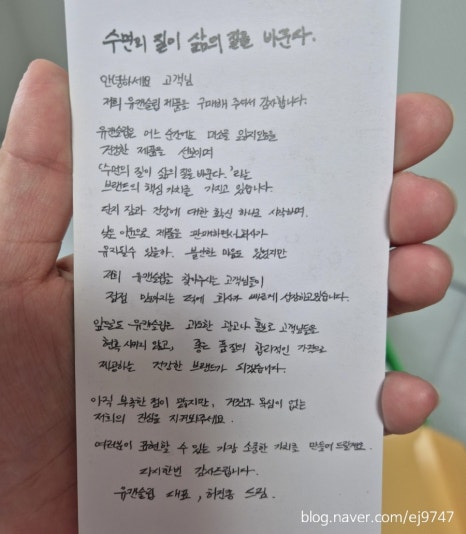 수면의 질이 삶의 질을 바꾼다.
안녕하세요 고객님
저희 유캔슬립 제품을 구매해 주셔서 감사합니다.
유캔슬립은 어느 순간에도 미소를 잃지않도록
건강한 제품을 선보이며
'수면의 질이 삶의 질을 바꾼다.'라는
브랜드의 핵심 가치를 가지고 있습니다.
단지 잠과 건강에 대한 확신 하나로 시작하며,
싶은 이윤으로 제품을 판매하면서 회사가
유지될수 있을까. 불안한 마음도 있었지만
저희 유캔슬립을 찾아주시는 고객님들이
점점 많아지는 덕에 회사가 빠르게 성장하고있습니다.
앞으로도 유캔슬립은 과도한 광고나 홍보로 고객님들을
현혹 시키지 않고, 좋은 품질의 합리적인 가격으로
제공하는 건강한 브랜드가 되겠습니다.
아직 부족한 점이 많지만, 거짓과 욕심이 없는
저희의 진심을 지켜봐주세요.
여러분이 표현할 수 있는 가장 소중한 가치를 만들어 드릴게요.
다시한번 감사드립니다.
유캔슬립 대표, 드림.
blog.naver.com/ej9747